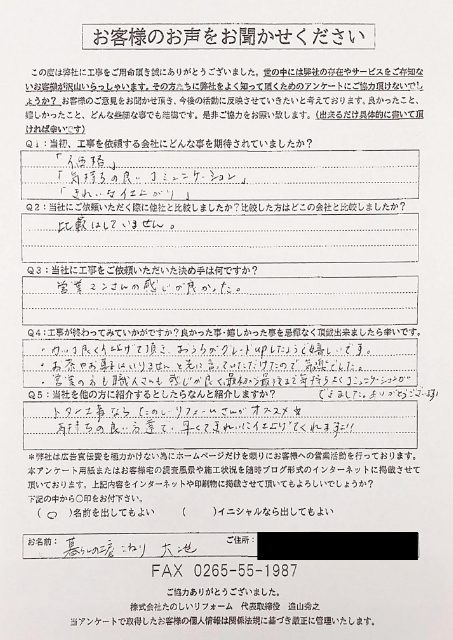 お客様のお声をお聞かせください
この度は弊社に工事をご用命頂き誠にありがとうございました。世の中には弊社の存在やサービスをご存知ない
お客様が沢山いらっしゃいます。その方たちに弊社をよく知って頂くためのアンケートにご協力頂けないでし
ょうか?お客様のご意見をお聞かせ頂き、今後の活動に反映させていきたいと考えております。良かったこと、
嬉しかったこと、どんな些細な事でも結構です。是非ご協力をお願い致します。(出来るだけ具体的に書いて頂
ければ幸いです)
Q1:当初、工事を依頼する会社にどんな事を期待されていましたか?
「価格」
「気持ちの良いコミュニケーション」
「きれいな仕上がり」
Q2:当社にご依頼いただく際に他社と比較しましたか?比較した方はどこの会社と比較しましたか?
比較はしていません。
Q3:当社に工事をご依頼いただいた決め手は何ですか?
営業マンさんの感じが良かった。
Q4:工事が終わってみていかがですか?良かった事・嬉しかった事を忌憚なく頂戴出来ましたら幸いです。
・カッコ良く仕上げて頂き、おうちがグレードupしたようで嬉しいです。
・お茶やお菓子はいりませんと先に言っていただけたので気楽でした。
・営業の方も職人さんも感じが良く、最初から最後まで気持ちよくコミュニケーションが
できました。ありがとうございます
Q5:当社を他の方に紹介するとしたらなんと紹介しますか?
トタン工事なら たのしいリフォームさんがオススメ☆
気持ちの良い方達で、早くてきれいに仕上げてくれます!!
*弊社は広告宣伝費を極力かけない為にホームページだけを頼りにお客様への営業活動を行っております。
本アンケート用紙またはお客様宅の調査風景や施工状況を随時ブログ形式のインターネットに掲載させて
頂いております。上記内容をインターネットや印刷物に掲載させて頂いてもよろしいでしょうか?
下記の中から〇印をお付下さい。
(〇)名前を出してもよい ( )イニシャルなら出してもよい
お名前: 暮らしの工房 こねり 大地 ご住所:
FAX 0265-55-1987
ご協力ありがとうございました。
株式会社たのしいリフォーム 代表取締役 遠山秀之
当アンケートで取得したお客様の個人情報は関係法規に基づき厳正に管理いたします。